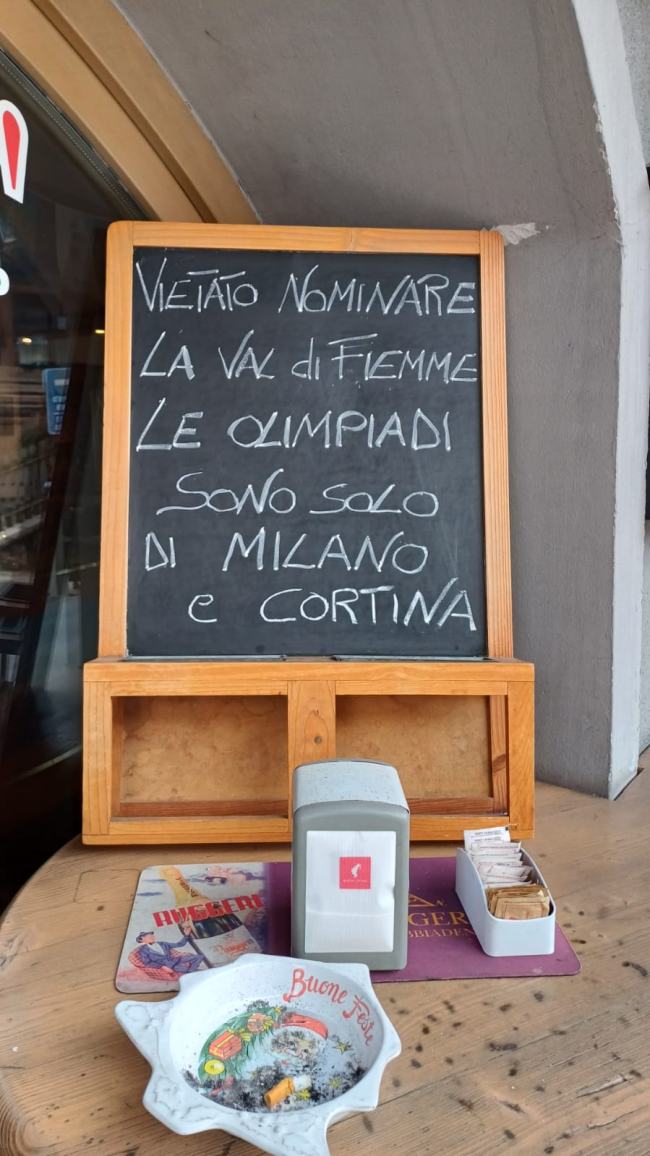 VIETATO NOMINARE
LA VAL di FIEMME
LE OLIMPIADI
SONO SOLO
DI MILANO
e CORTINA
RUGGERI
Buone Feste